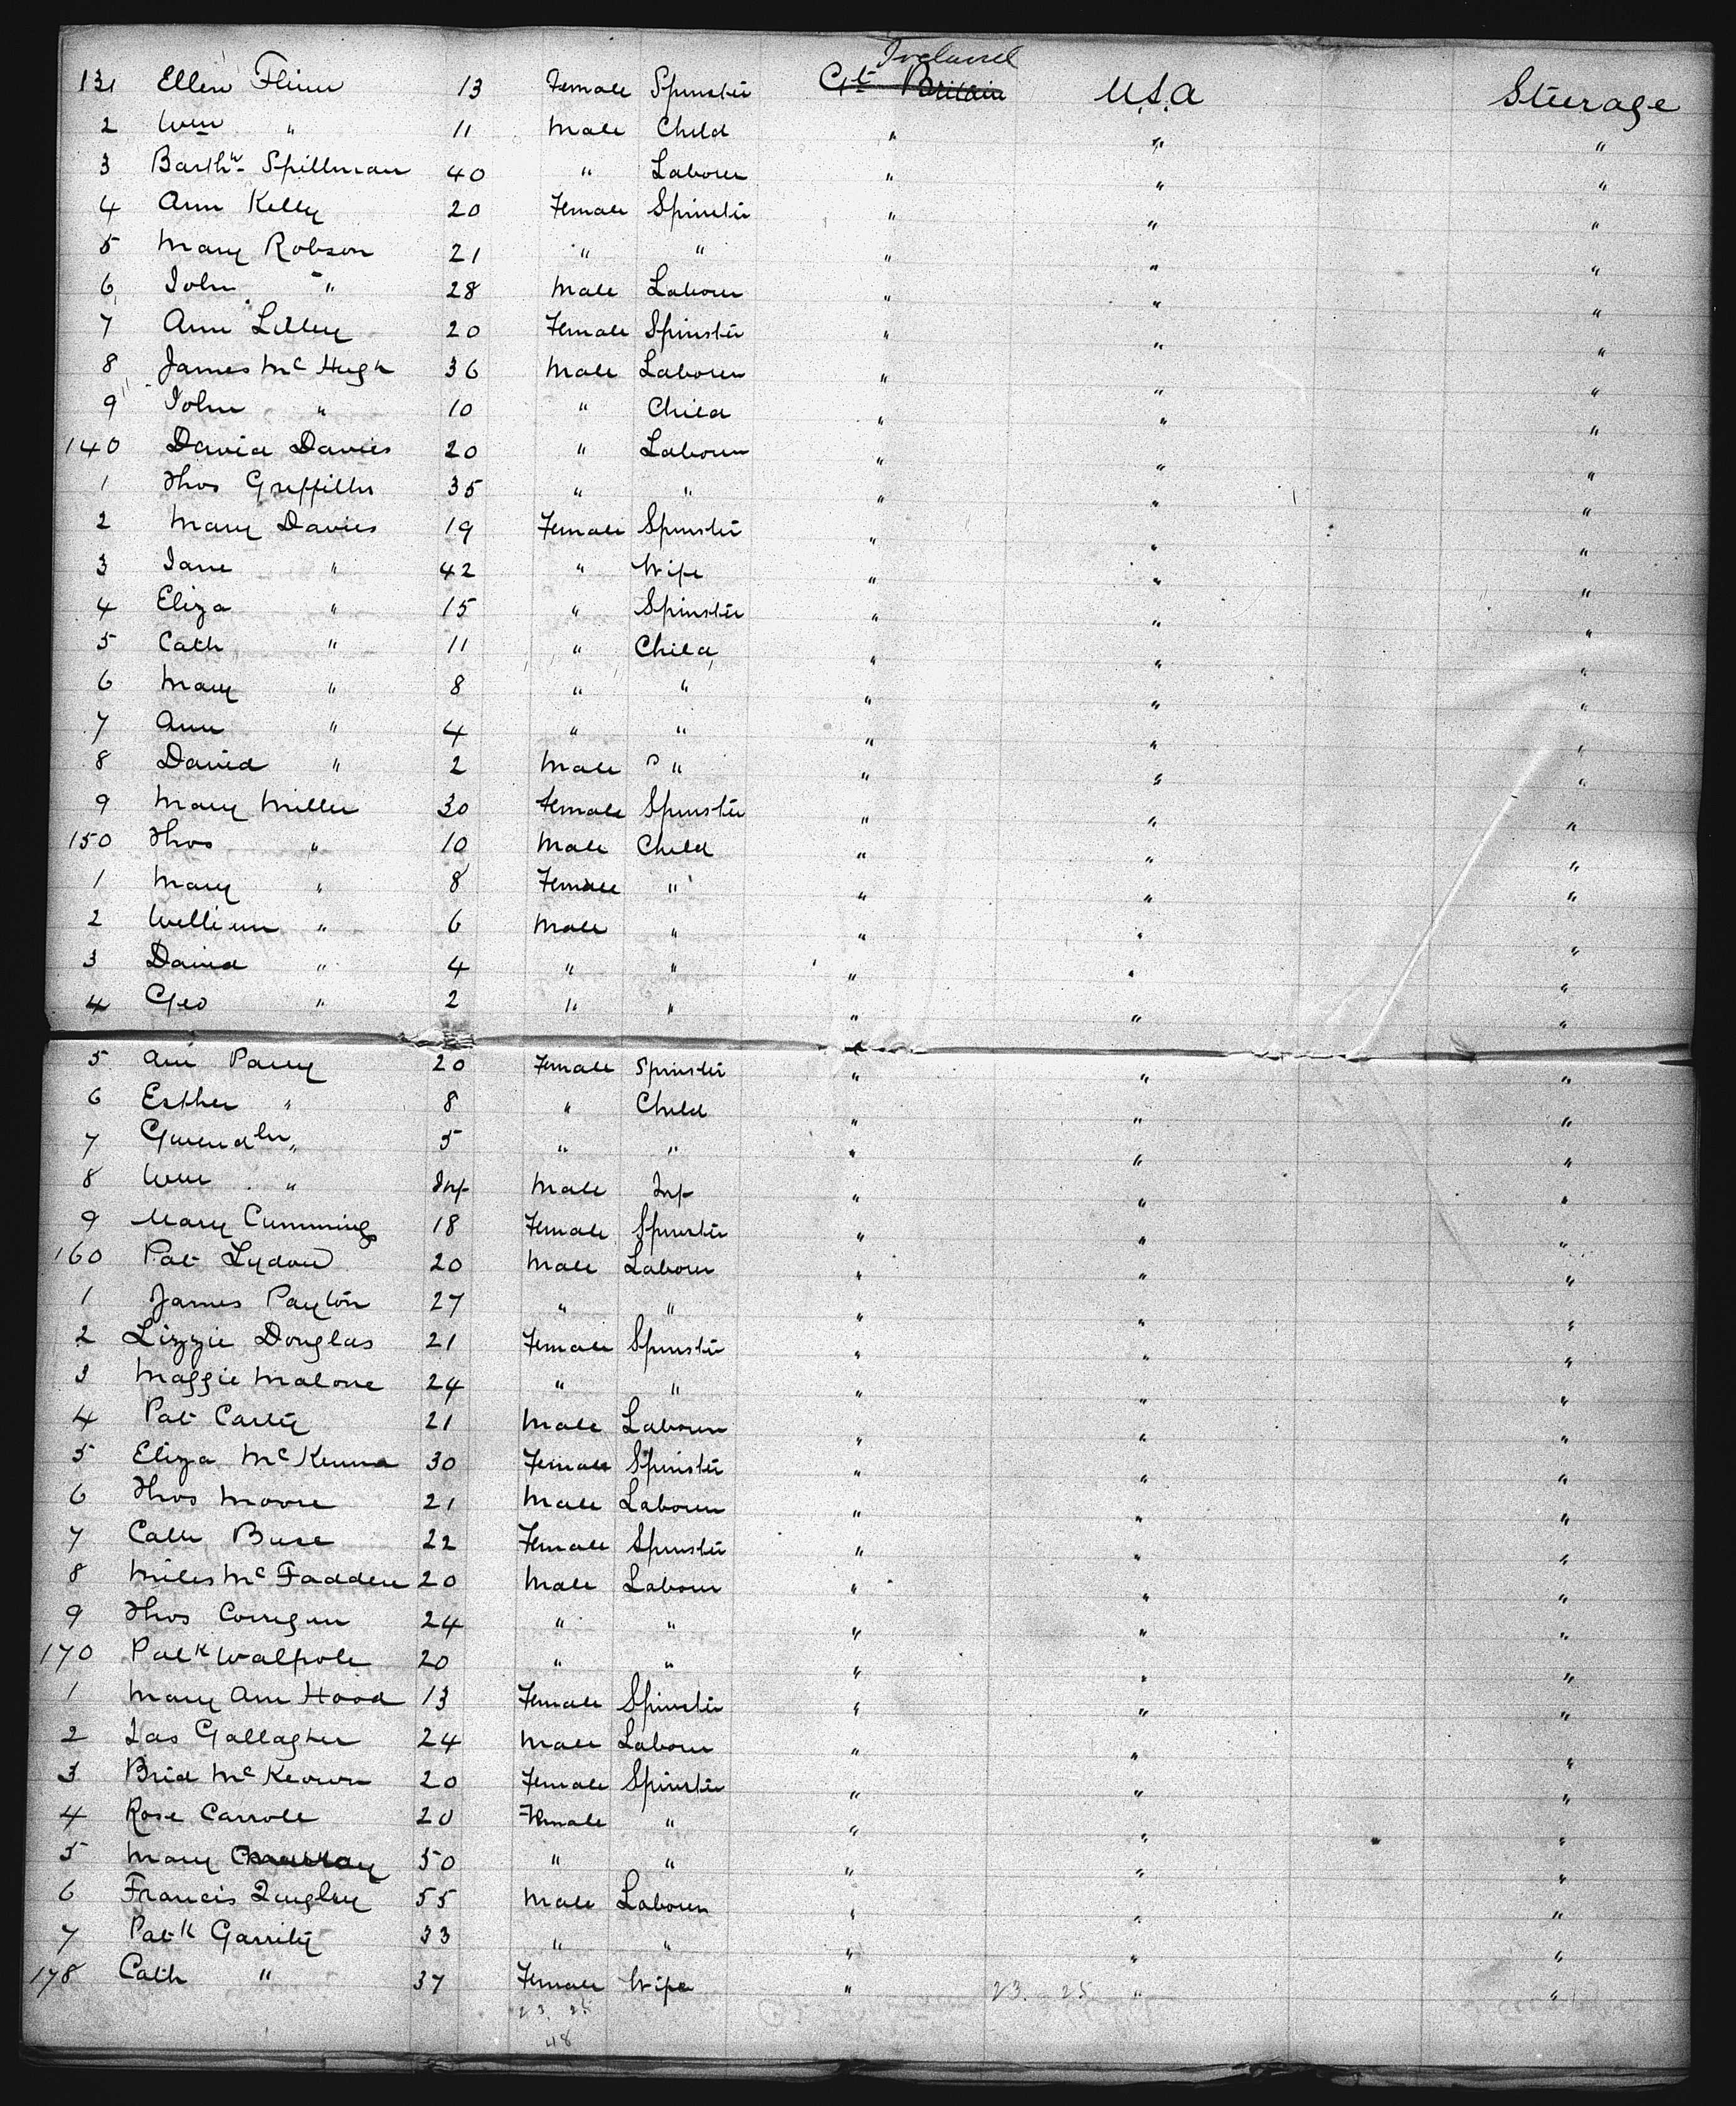 Ireland
131 Ellen Flinn 13 Female Spinster Gt Britain U.S.A Steerage
2 Wm " 11 Male Child " " "
3 Barthw Spillman 40 " Laborer " " "
4 Ann Kelly 20 Female Spinster " " "
5 Mary Robson 21 " " " " "
6 John " 28 Male Laborer " " "
7 Ann Lilley 20 Female Spinster " " "
8 James McHugh 36 Male Laborer " " "
9 John " 10 " Child " " "
140 David Davies 20 " Laborer " " "
1 Thos Griffiths 35 " " " " "
2 Mary Davies 19 Female Spinster " " "
3 Jane " 42 " Wife " " "
4 Eliza " 15 " Spinster " " "
5 Cath " 11 " Child " " "
6 Mary " 8 " " " " "
7 Ann " 4 " " " " "
8 David " 2 Male " " " "
9 Mary Miller 30 Female Spinster " " "
150 Thos " 10 Male Child " " "
1 Mary " 8 Female " " " "
2 William " 6 Male " " " "
3 David " 4 " " " " "
4 Geo " 2 " " " " "
5 Ann Parry 20 Female Spinster " " "
6 Esther " 8 " Child " " "
7 Gwendln " 5 " " " " "
8 Wm " Inf Male Inf " " "
9 Mary Cummings 18 Female Spinster " " "
160 Pat Lydon 20 Male Laborer " " "
1 James Payton 27 " " " " "
2 Lizzie Douglas 21 Female Spinster " " "
3 Maggie Malone 24 " " " " "
4 Pat Carty 21 Male Laborer " " "
5 Eliza McKenna 30 Female Spinster " " "
6 Thos Moore 21 Male Laborer " " "
7 Cath 22 Female Spinster " " "
8 Miles McFadden 20 Male Laborer " " "
9 Thos Corrigan 24 " " " " "
170 Patk Walpole 20 " " " " "
1 Mary Ann Hood 13 Female Spinster " " "
2 Jas Gallagher 24 Male Laborer " " "
3 Brid McKeown 20 Female Spinster " " "
4 Rose Carroll 20 Female " " " "
5 Mary 50 " " " " "
6 Francis Quigley 55 Male Laborer " " "
7 Patk Garrity 33 " " " " "
178 Cath " 37 Female Wife " " "
23 25 23 25
48